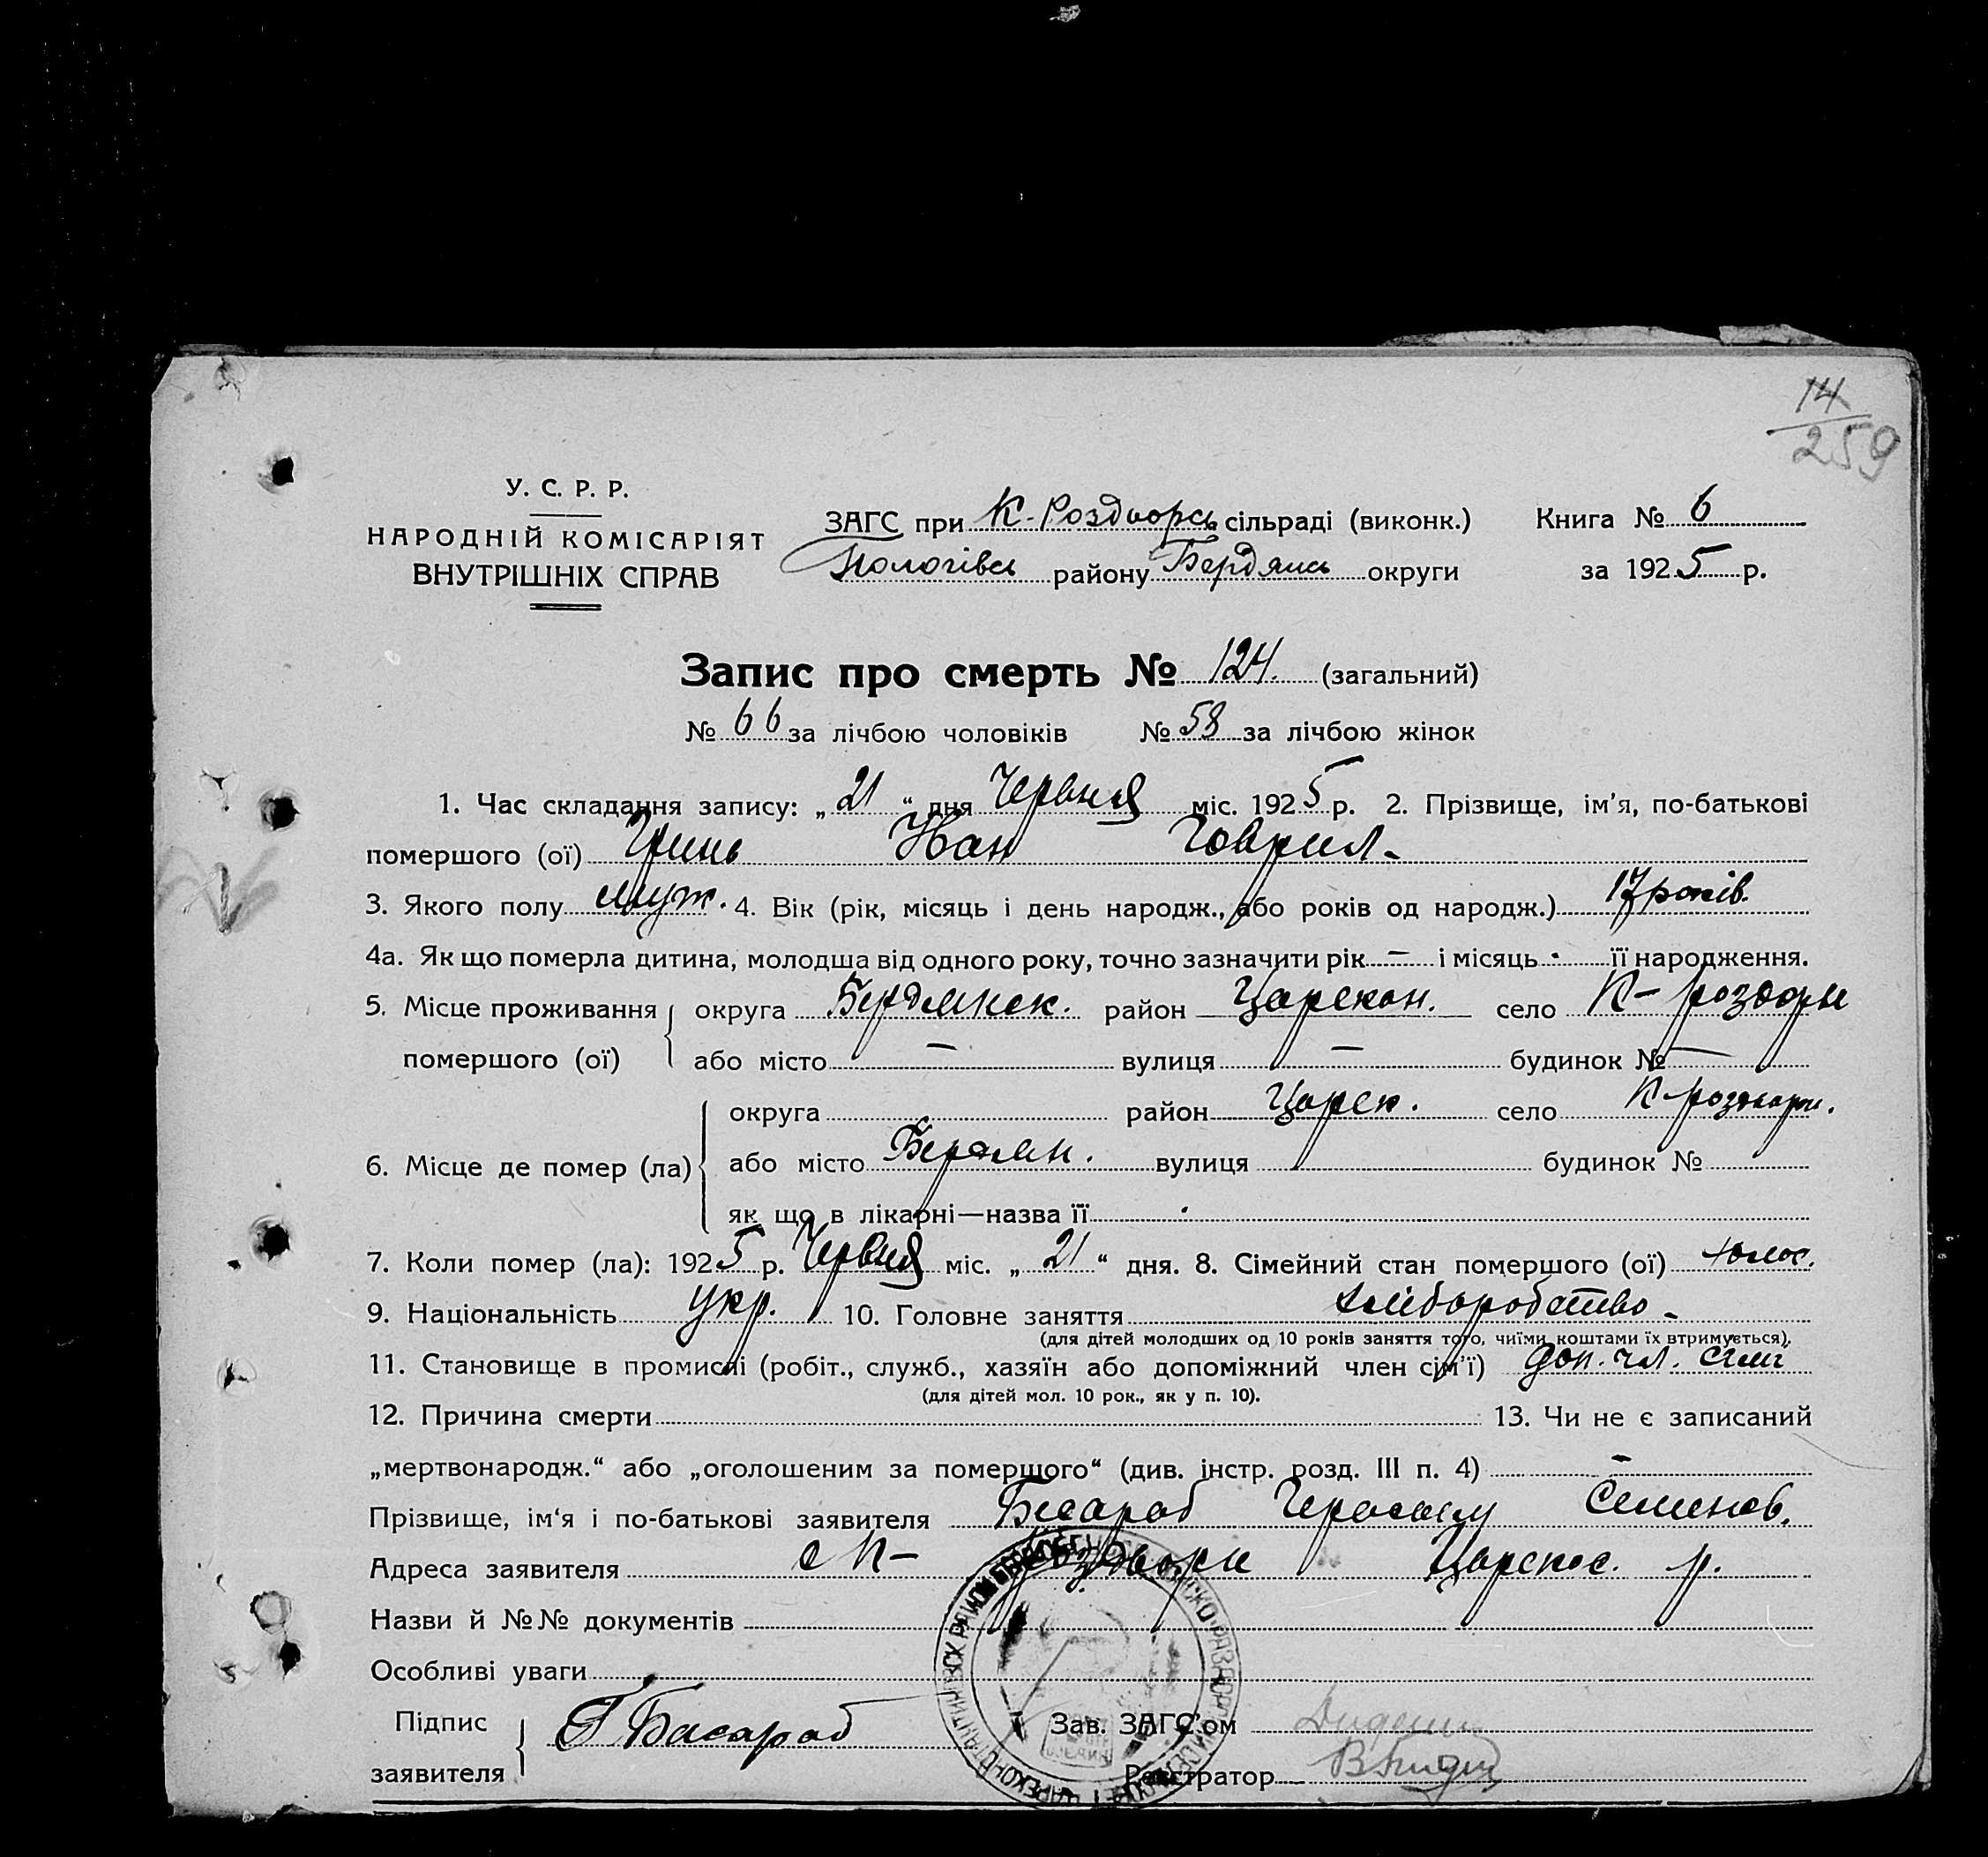 14
259
У. С. Р. Р.
НАРОДНІЙ КОМІСАРІЯТ
ВНУТРІШНІХ СПРАВ
ЗАГС при К-Роздорсь сільраді (виконк.) Книга № 6
Пологівсь району Бердянсь округи за 1925 р.
Запис про смерть № 124. (загальний)
№ 66 за лічбою чоловіків № 58 за лічбою жінок
1. Час складання запису: „21“ дня Червня міс. 1925 р. 2. Прізвище, ім'я, по-батькові
помершого (ої) Гринь Иван Гаврил-
3. Якого полу муж. 4. Вік (рік, місяць і день народж., або років од народж.) 17 років.
4а. Як що померла дитина, молодша від одного року, точно зазначити рік — і місяць - її народження.
5. Місце проживання округа Бердянск. район Царекон. село К-роздоры
помершого (ої) або місто — вулиця — будинок № —
округа район Царек. село К-роздоры.
6. Місце де помер (ла) або місто Бердян. вулиця будинок №
як що в лікарні—назва її
7. Коли помер (ла): 1925 р. Червня міс. „21“ дня. 8. Сімейний стан помершого (ої)
9. Національність укр. 10. Головне заняття хліборобство -
(для дітей молодших од 10 років заняття того, чиїми коштами їх втримується).
11. Становище в промислі (робіт., служб., хазяїн або допоміжний член сім'ї) доп. чл. сімї
(для дітей мол. 10 рок., як у п. 10).
12. Причина смерти 13. Чи не є записаний
„мертвонародж.“ або „оголошеним за померщого“ (див. інстр. розд. III п. 4) —
Прізвище, ім'я і по-батькові заявителя Басараб Герасим Семенов.
Адреса заявителя с К- роздоры Царекос. р.
Назви й №№ документів
Особливі уваги
Підпис
заявителя Г Басараб
Зав. ЗАГС'ом
Реєстратор